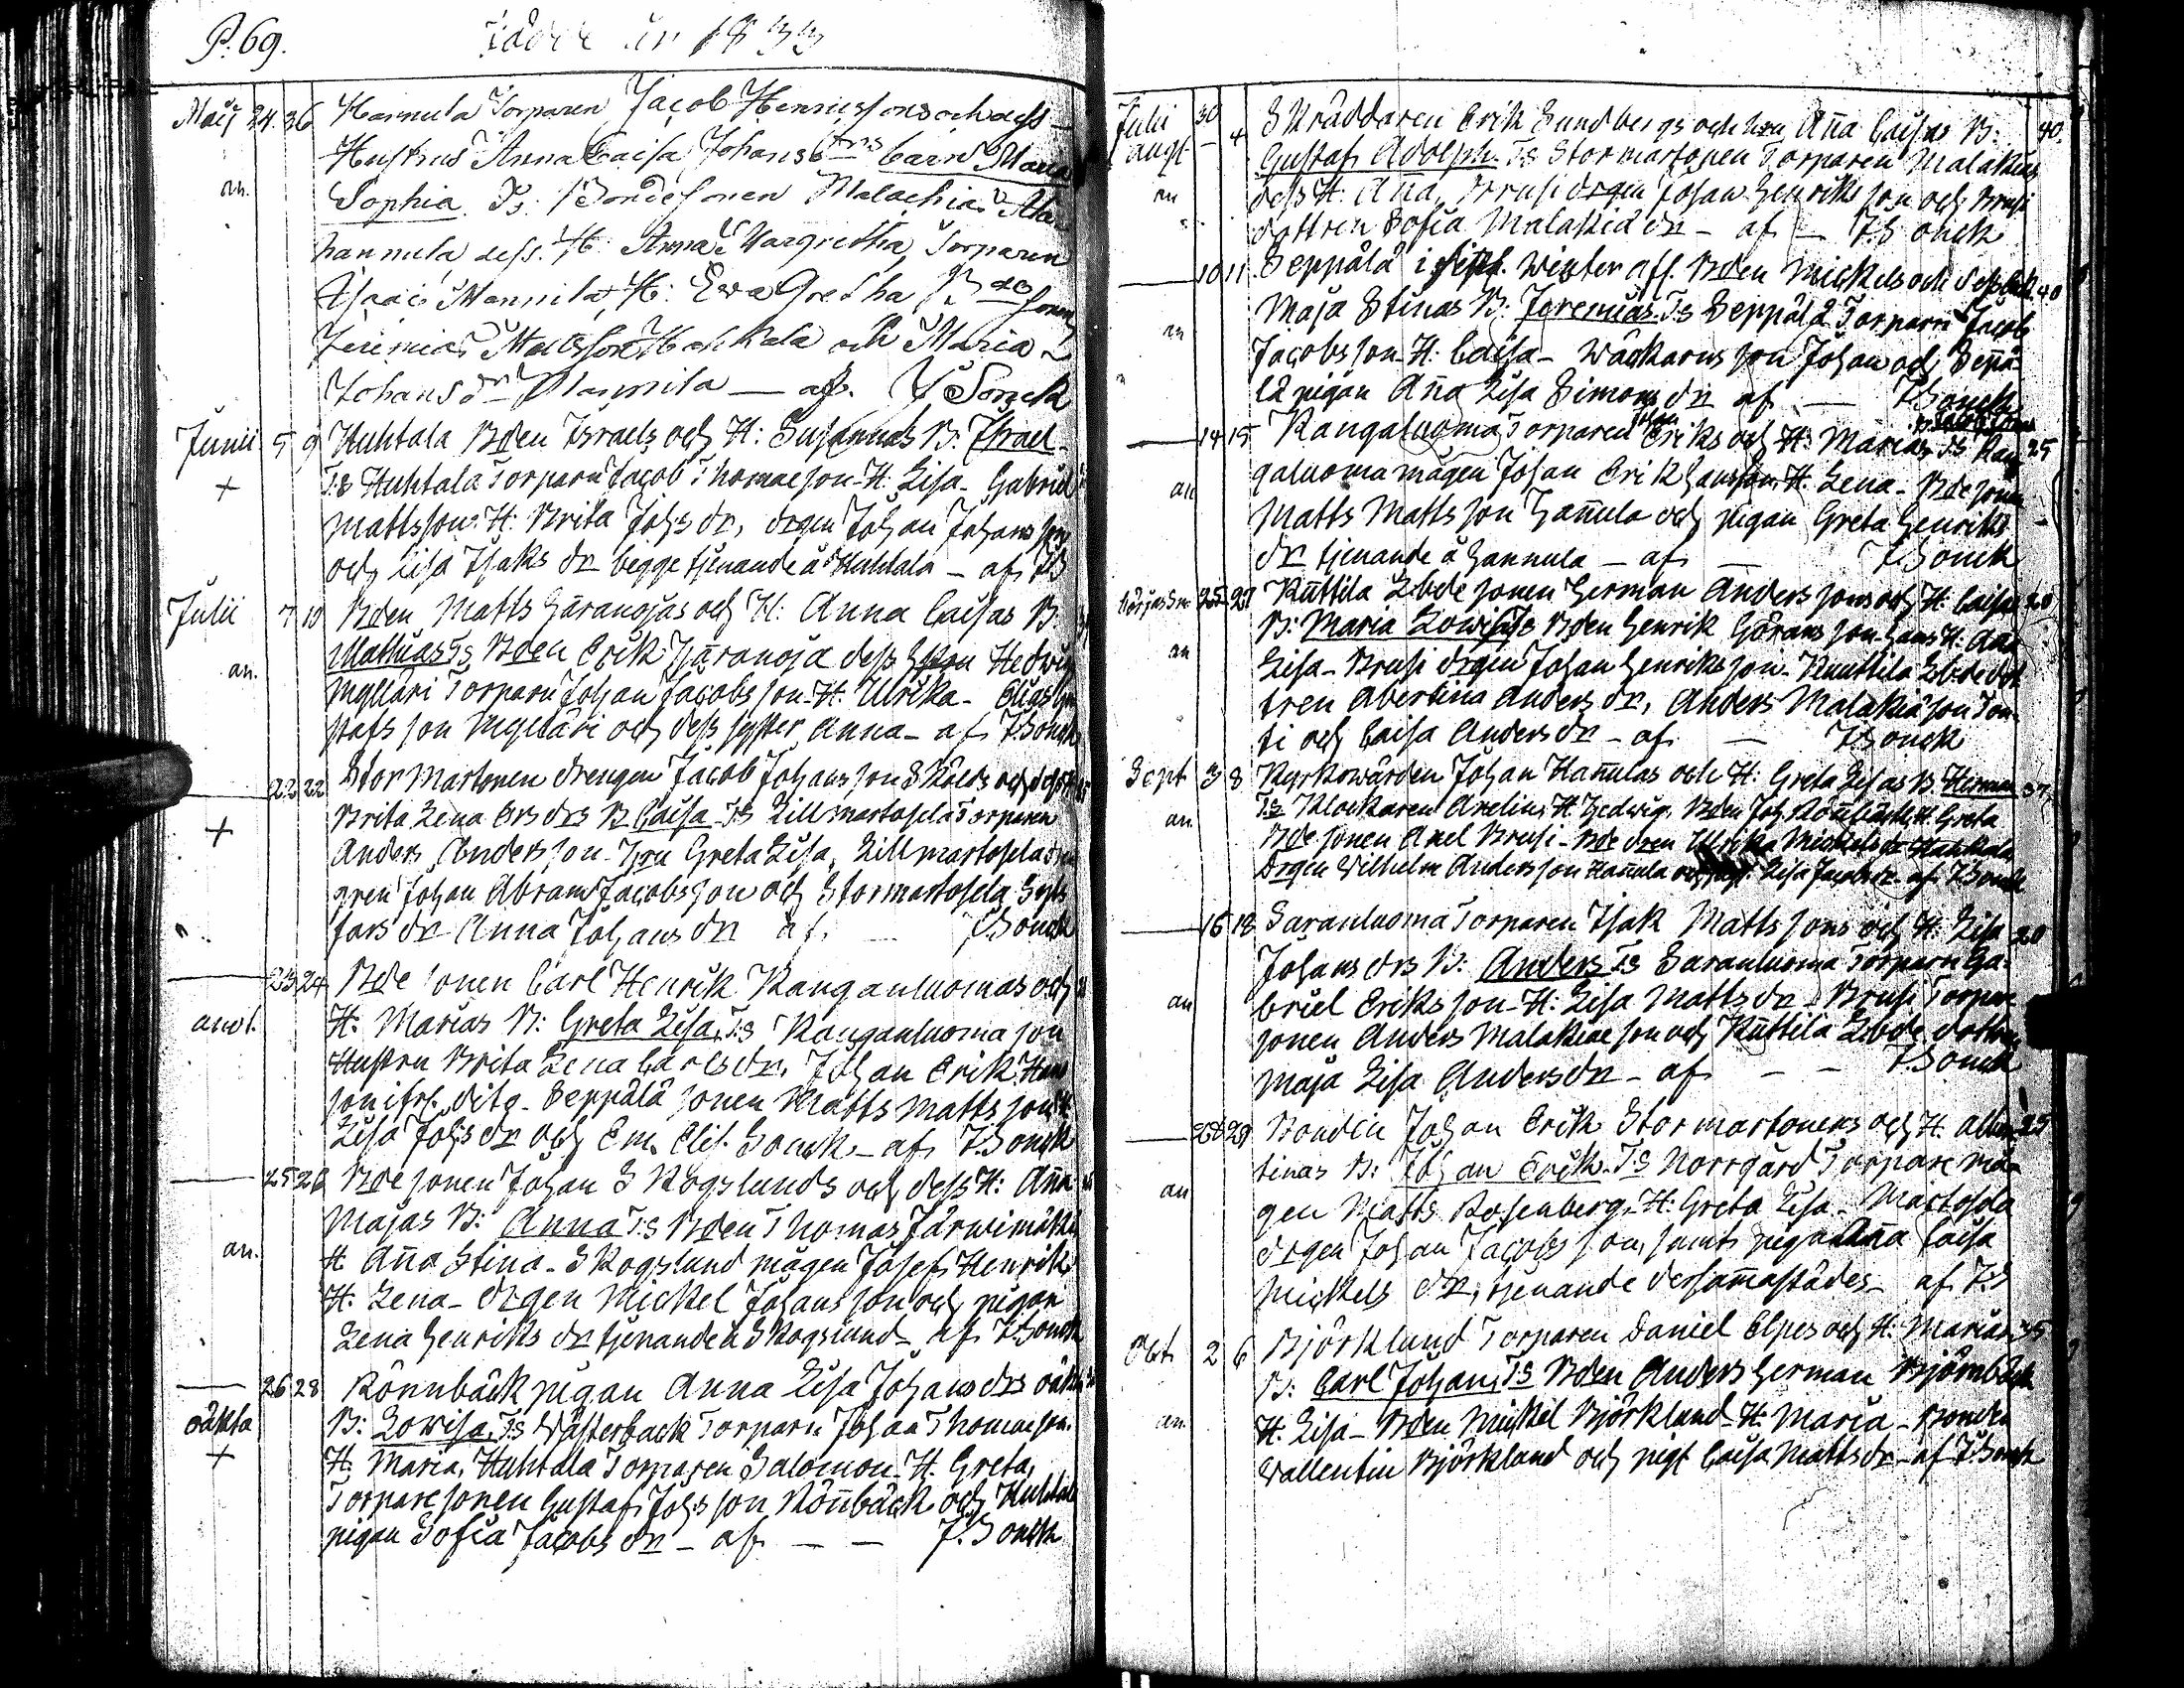 P. 69. år 1833
Maij 24. 26 Hannula Torparen Jacob Henricssons och dess
Hustrus Anna Caisa Johansdrs barn Maria
an. Sophia. Ts: Bondesonen Malachias
hannula dess H: Anna Margretha, Torparen
Isaac Mannila, H: Ewa Gretha
Jeremias Mattsson och Maria
Johans dr Mannila — af. Sonck
Junii 5 9 Huhtala Bden Israels och H: Susannas B: Israel
+ Ts Huhtala Torparn Jacob Thomaeson H: Lisa - Gabriel
Mattsson H: Brita Johs dr, drgen Johan Johansson
och Lisa Isaks dr begge tjenande å Huhtala - af
Julii 7 10 Bden Matts Häranojas och H: Anna Caisas B:
an. Mathias Ts Bden Erik Häranoja dess Hustru Hedwig
Mylläri Torparn Johan Jacobsson - H: Ulrika -
stafs son Mylläri och dess syster Anna - af Sonck
— 22 22 Stor Martonen drengen Jacob Johansson och dess H:
+ Brita Lena drs B Caisa Ts Lillmartosela Torparen
Anders Andersson - Hru Greta Lisa, Lillmartosela
gren Johan Abram Jacobsson och Stormartosela
fars dr Anna Johans dr af. — Sonck
— 23 24 Bde sonen Carl Henrik Kanganluomas och
H: Marias B: Greta Lisa, Ts Kanganluoma son
Hustru Brita Lena Carlsdr, Johan Erik
son ifr. dito - Seppälä sonen Matts Mattsson
Lisa Johs dr och Em. Elis. Sonck - af Sonck
— 25 26 Bde sonen Johan Skogslunds och dess H: Anna
an. Majas B: Anna Ts Bden Thomas Järwimäki
H Anna Stina - Skogslund mågen Josef Henriks
H. Lena - drgen Mickel Johansson och pigan
Lena Henriks dr tjenande å Skogslund - af Sonck
— 26 28 Rönnbäck pigan Anna Lisa Johans drs oäkta
oäkta B: Lowisa, Ts Wästerback Torparn Johan Thomaeson.
+ H. Maria, Huhtala Torparen Salomon - H. Greta,
Torpare sonen Gustaf Johs son Rönnbäck och Huhtala
pigan Sofia Jacobs dr - af — — Sonck
Julii 30 Skräddaren Erik Sundbergs och hru Anna Caisas B: 40.
augt — 4 Gustaf Adolph. Ts Stormartonen Torparen Malakias
an dess H: Anna, Brusi drgen Johan Henriksson och Brusi
dottren Sofia Malakiæ dr - af — Sonck
— 10 11 Seppälä i Winter aff. Bden Mickels och dess 40
an Maja Stinas B: Jeremias. Ts Seppälä Torparn Jacob
Jacobsson H: Caisa - Wäckarns son Johan och Seppä
lä pigan Anna Lisa Simons dr af — Sonck
— 14 15 Kangaluoma Torparen Eriks och H: Marias Ts Kan 25
an galuoma mågen Johan Erik Hansson, H. Lena - Bdesonen
Matts Mattsson Hannula och pigan Greta Henriks
dr tjenande å Hannula — af — Sonck
25 27 Kuttila Lbde sonen Herman Andersons och H: Caisas 20
an B: Maria Lowisa Ts Bden Henrik Göransson - hans H: Anna
Lisa - Brusi drgen Johan Henriksson - Knuttila Lbde dot
tren Abertina Anders dr, Anders Malakiason
ti och Caisa Anders dr - af — Sonck
Sept 3 8 Kyrkowärden Johan Hannulas och H: Greta Lisas B. Herman 37
an. Ts Klockaren Arelius, H Hedwig, Bden Joh. Rönnbäck, H. Greta
Bde sonen Axel Brusi - Bde dren Ulrika Mickels dr
Drgen Wilhelm Andersson Hannula Lisa Jacobs dr af Sonck
— 16 18 Saranluoma Torparen Isak Mattssons och H. Lisa 20
Johans drs B: Anders Ts Saranluoma Torparn Ga-
an briel Eriksson - H: Lisa Matts dr - Brusi Torpare
sonen Anders Malakiae son och Kuttila Lbde dottren
Maja Lisa Anders dr - af — — Sonck
— 28 29 Bonden Johan Erik Stormartonens och H. Alber 25
tinas B: Johan Erik. Ts Norrgård Torpare må
an gen Matts Rosenberg - H: Greta Lisa - Martosela
drgen Johan Jacobsson, samt pigan Anna Caisa
Mickels dr, tjenande dersammastädes - af
Oct. 2 6 Björklund Torparen Daniel Elpes och H: Marias 35
B: Carl Johan, Ts Bden Anders Herman Björnback
an. H. Lisa - Bden Mickel Björklund - H: Maria - Bonden
Wallentin Björklund och pigt Caisa Matts dr - af Sonck